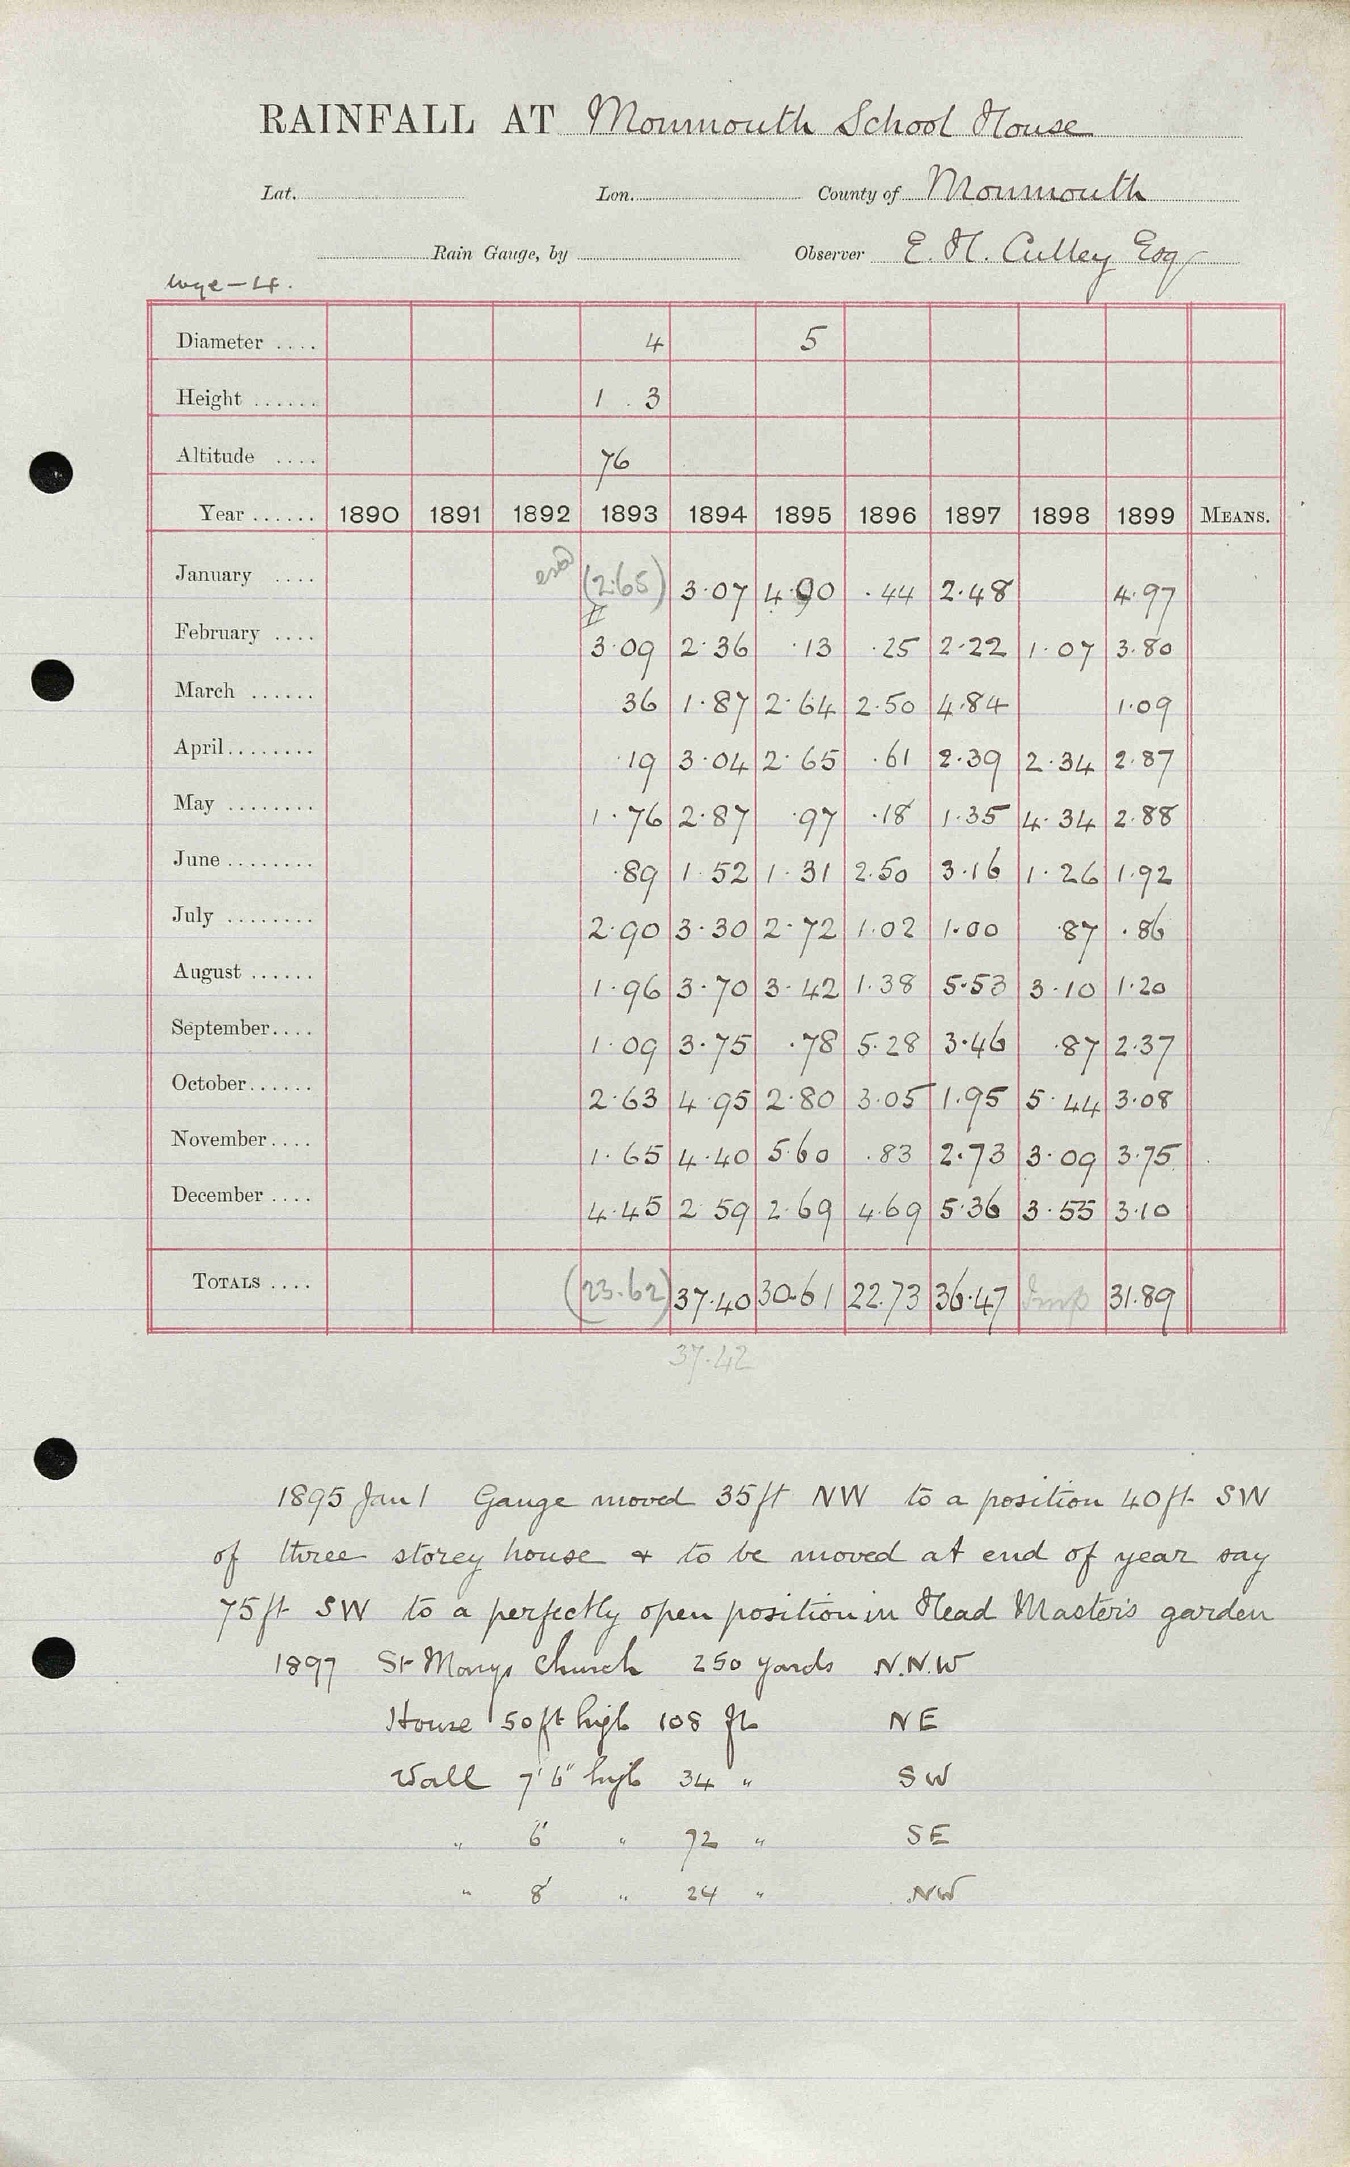 RAINFALL AT Monmouth School House
Lat. Lon. County of Monmouth
Rain Gauge, by Observer E. H. Culley Esq
Wye - 4.
Diameter .... 4 5
Height ...... 1 . 3
Altitude .... 76
Year ...... 1890 1891 1892 1893 1894 1895 1896 1897 1898 1899 MEANS.
January .... (2.65) 3.07 4.90 .44 2.48 4.97
February .... 3.09 2.36 .13 .25 2.22 1.07 3.80
March ...... 36 1.87 2.64 2.50 4.84 1.09
April ........ .19 3.04 2.65 .61 2.39 2.34 2.87
May ........ 1.76 2.87 .97 .18 1.35 4.34 2.88
June ........ .89 1.52 1.31 2.50 3.16 1.26 1.92
July ........ 2.90 3.30 2.72 1.02 1.00 .87 .86
August ...... 1.96 3.70 3.42 1.38 5.53 3.10 1.20
September .... 1.09 3.75 .78 5.28 3.46 .87 2.37
October ...... 2.63 4.95 2.80 3.05 1.95 5.44 3.08
November .... 1.65 4.40 5.60 .83 2.73 3.09 3.75
December .... 4.45 2 59 2.69 4.69 5.36 3.55 3.10
TOTALS .... (23.62) 37.40 30.61 22.73 36.47 Imp 31.89
37.42
1895 Jan 1 Gauge moved 35 ft NW to a position 40 ft. SW
of three storey house & to be moved at end of year say
75 ft SW to a perfectly open position in Head Master's garden
1897 St Marys Church 250 yards N.N.W
House 50 ft high 108 ft NE
Wall 7' 6" high 34 " SW
" 6' " 72 " SE
" 8' " 24 " NW